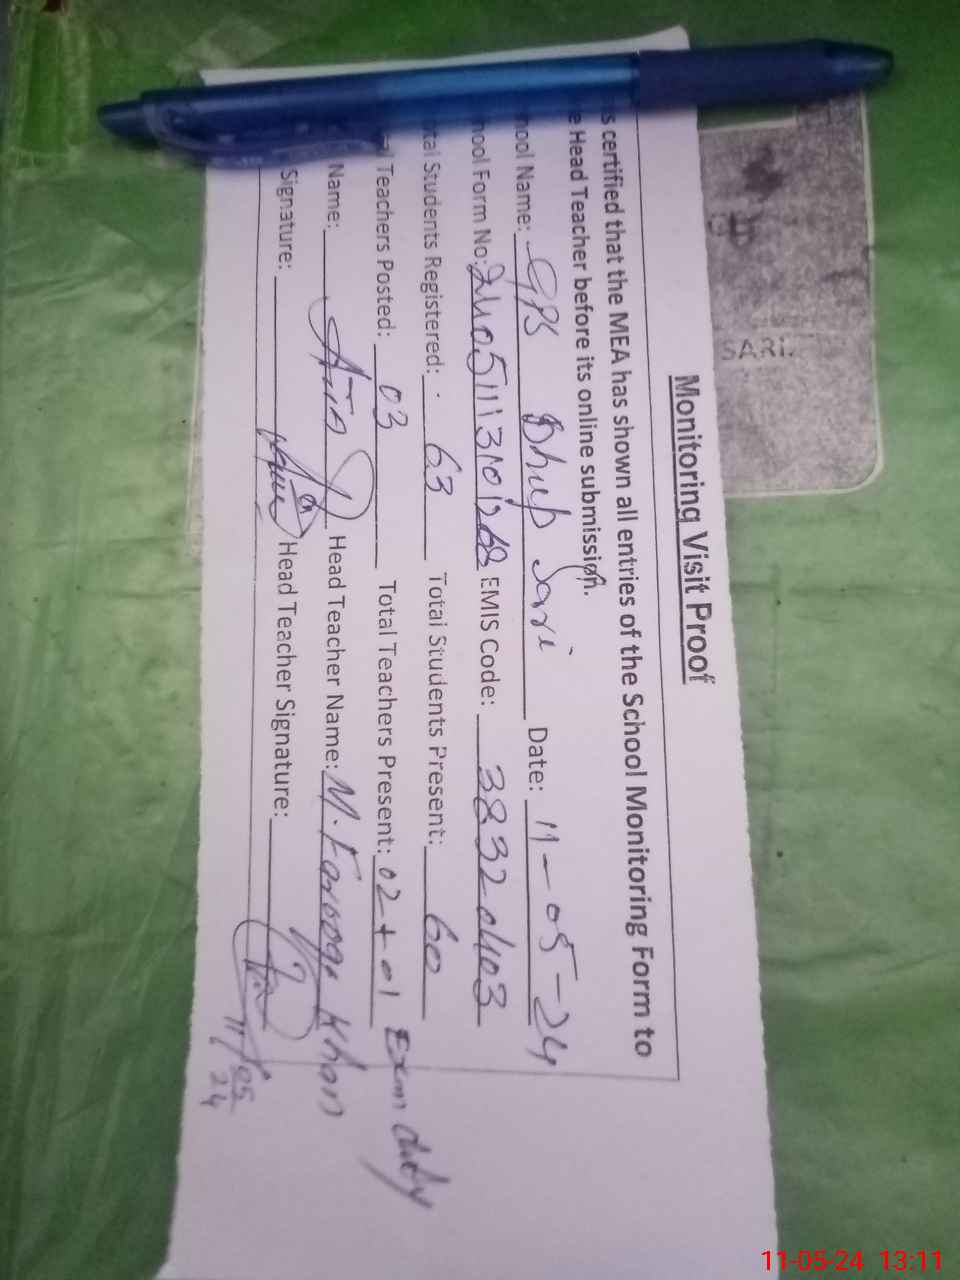 Monitoring Visit Proof
s certified that the MEA has shown all entries of the School Monitoring Form to
e Head Teacher before its online submission.
hool Name: GPS Dhup Sari Date: 11-05-24
hool Form No: EMIS Code:
tal Students Registered: 63 Total Students Present: 60
l Teachers Posted: 03 Total Teachers Present: 02+01 Exam duty
Name: Head Teacher Name: M. Farooq Khan
Signature: Head Teacher Signature:
11/05/24
SARI.
11-05-24 13:11